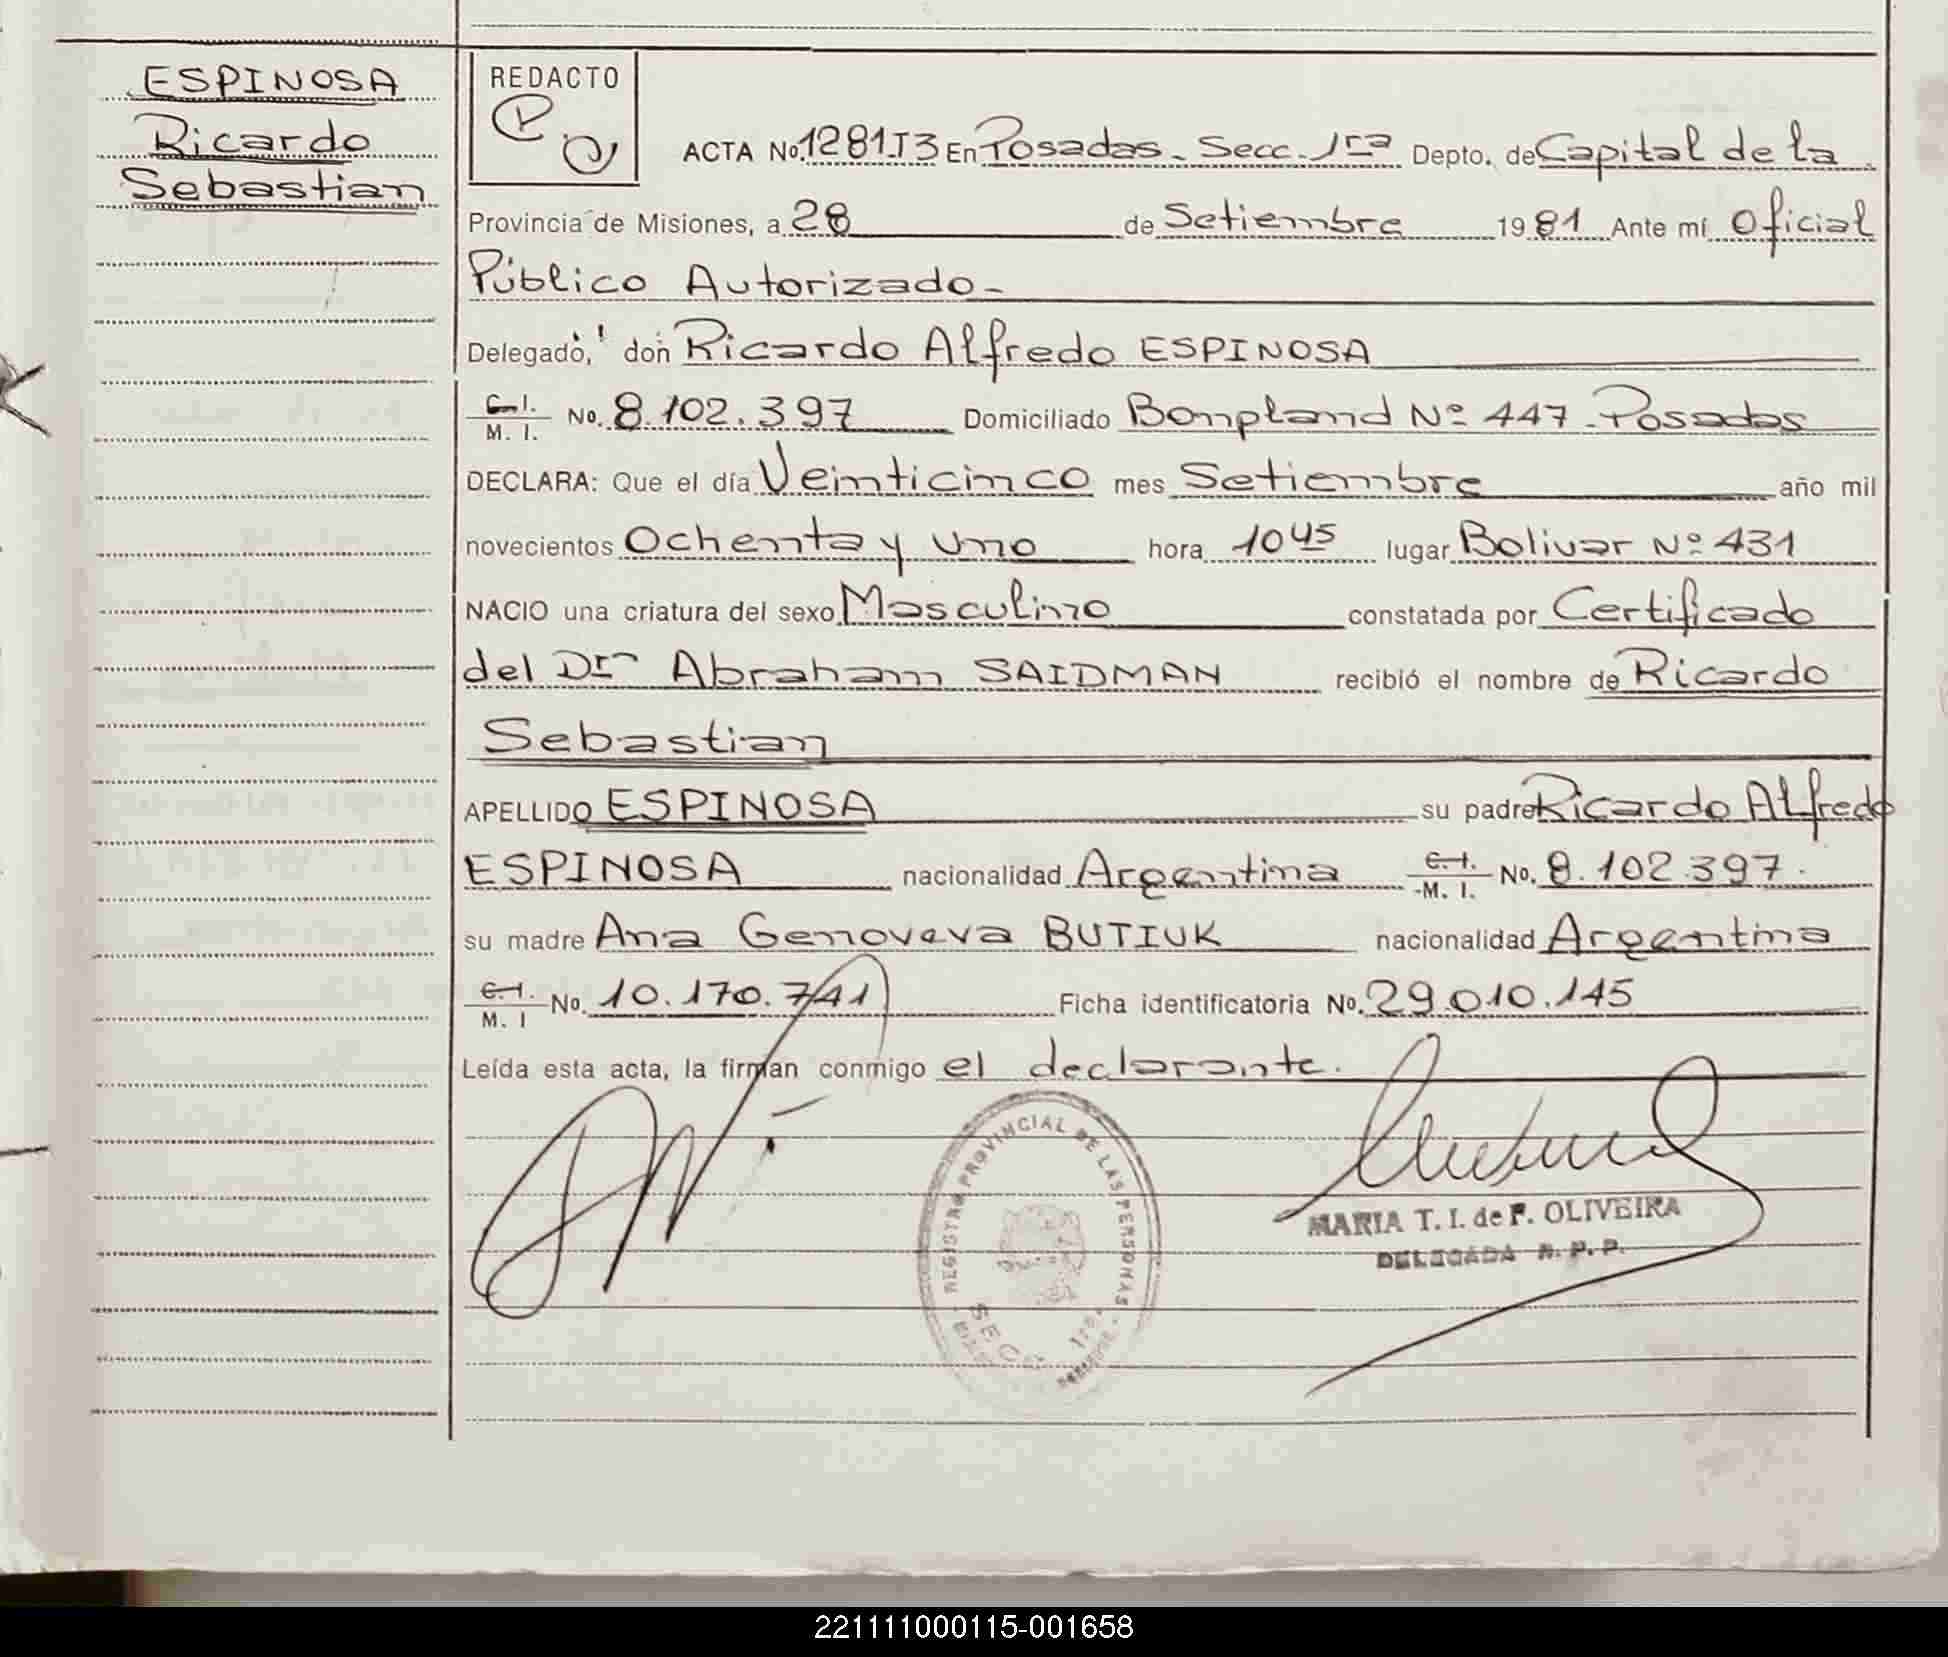 ESPINOSA
Ricardo
Sebastian
REDACTO
ACTA No. 1281 T3 En Posadas - Secc. 1ra Depto. de Capital de la
Provincia de Misiones, a 28 de Setiembre 1981 Ante mí Oficial
Público Autorizado -
Delegado, don Ricardo Alfredo ESPINOSA
C.I. M. I. No. 8.102.397 Domiciliado Bonpland Nº 447 - Posadas
DECLARA: Que el día Veinticinco mes Setiembre año mil
novecientos Ochenta y Uno hora 10 45 lugar Bolivar Nº 431
NACIO una criatura del sexo Masculino constatada por Certificado
del Dr Abraham SAIDMAN recibió el nombre de Ricardo
Sebastian
APELLIDO ESPINOSA su padre Ricardo Alfredo
ESPINOSA nacionalidad Argentina C.I. M. I. No. 8.102.397.
su madre Ana Genoveva BUTIUK nacionalidad Argentina
C.I. M. I No. 10.170.741 Ficha identificatoria No. 29.010.145
Leída esta acta, la firman conmigo el declarante.
REGISTRO PROVINCIAL DE LAS PERSONAS
SECC 1ra.
MARIA T. I. de F. OLIVEIRA
DELEGADA R. P. P.
221111000115-001658